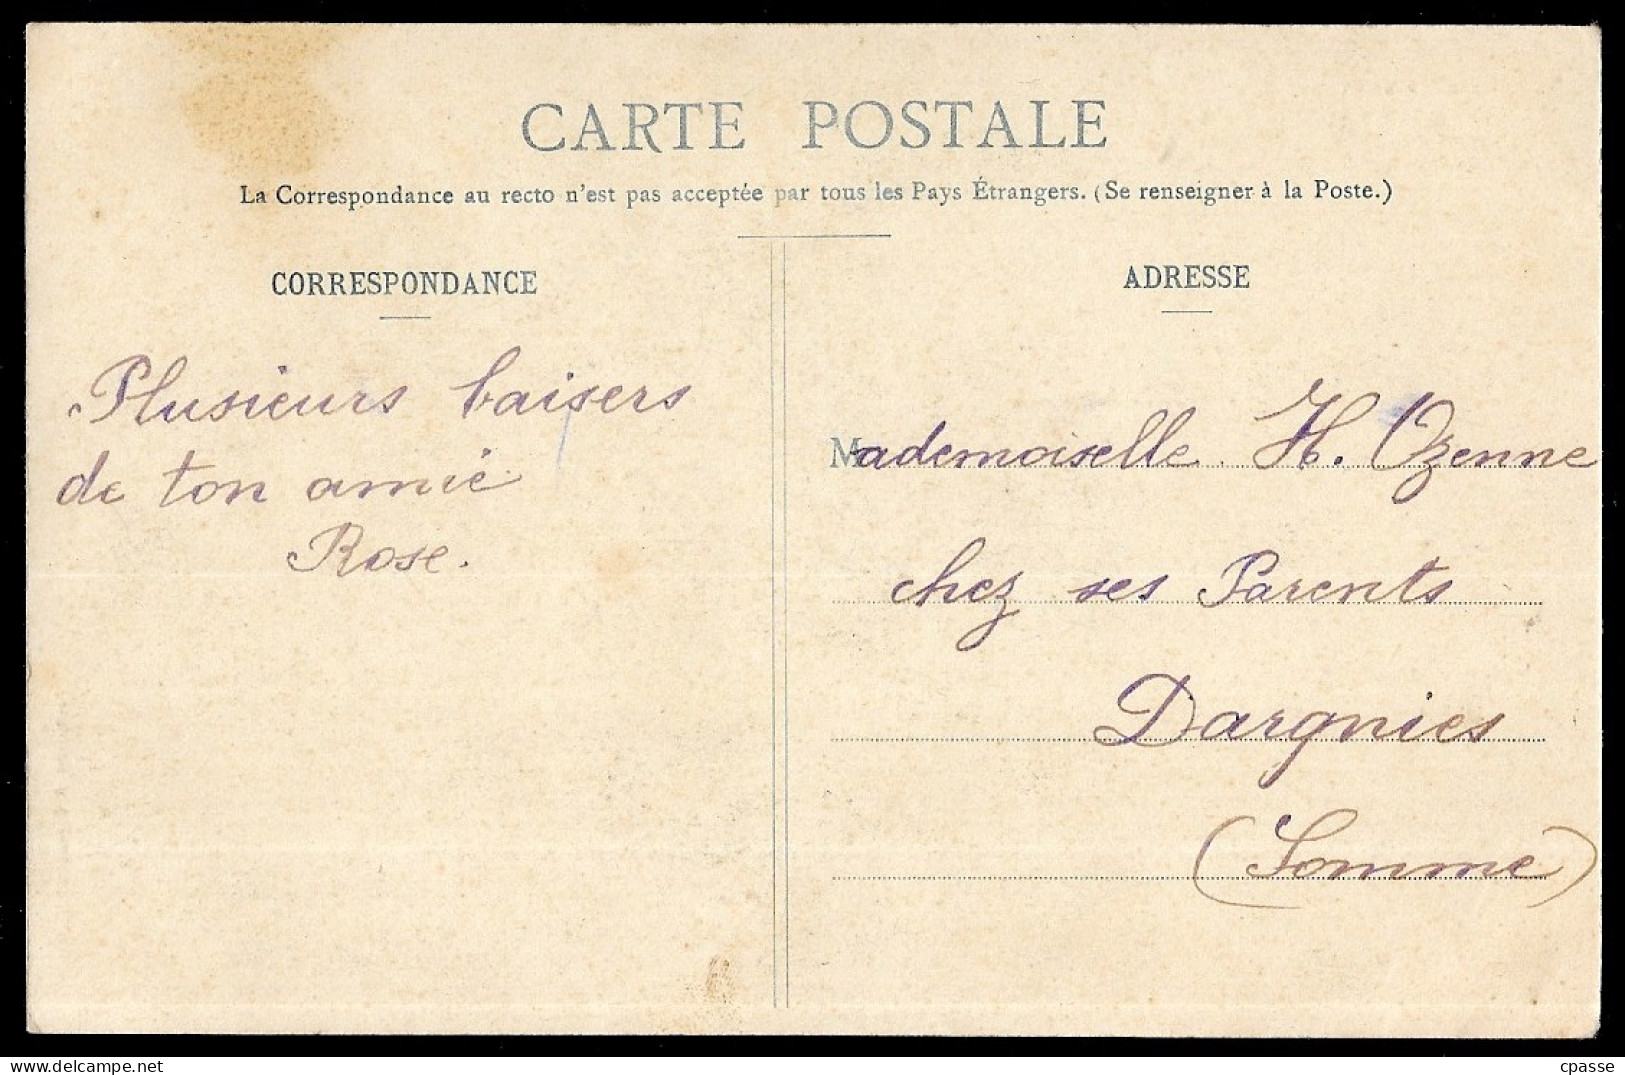 CARTE POSTALE
La Correspondance au recto n'est pas acceptée par tous les Pays Étrangers. (Se renseigner à la Poste.)
CORRESPONDANCE
Plusieurs baisers
de ton amie
Rose.
ADRESSE
Mademoiselle H. Ozenne
chez ses Parents
Dargnies
(Somme)
cpasse